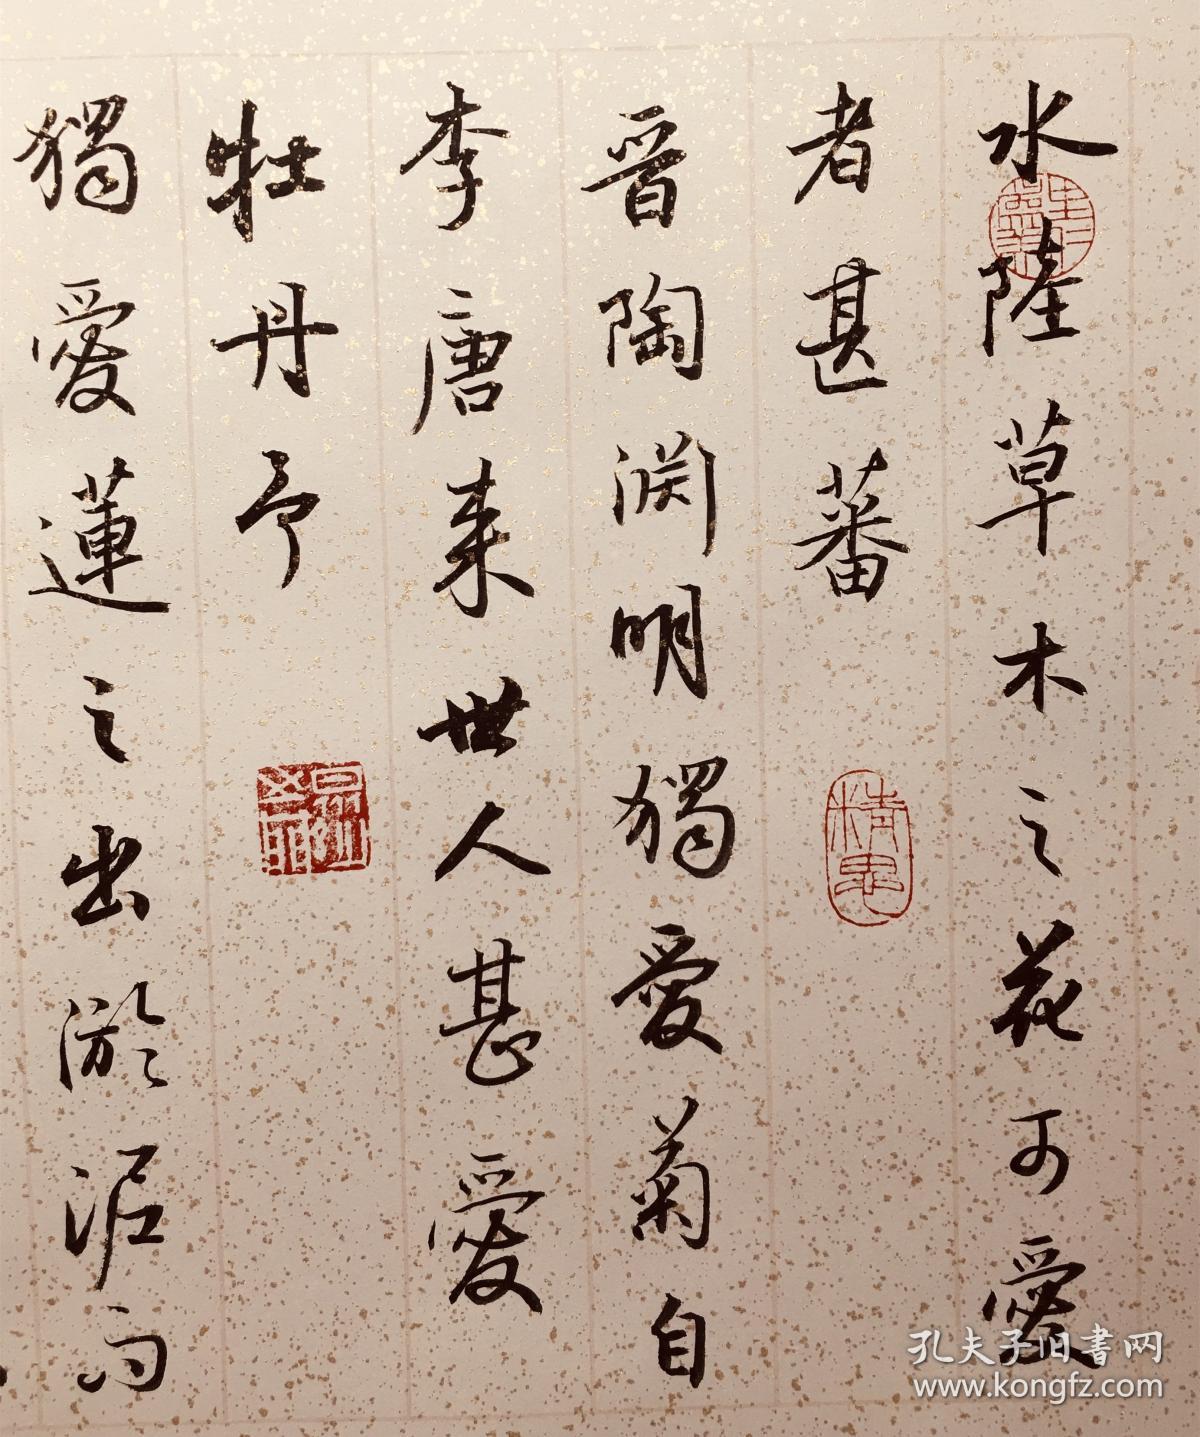 水陸草木之花可愛
者甚蕃
晋陶渊明獨愛菊自
李唐来世人甚愛
牡丹予
獨愛蓮之出淤泥而
孔夫子旧书网
www.kongfz.com